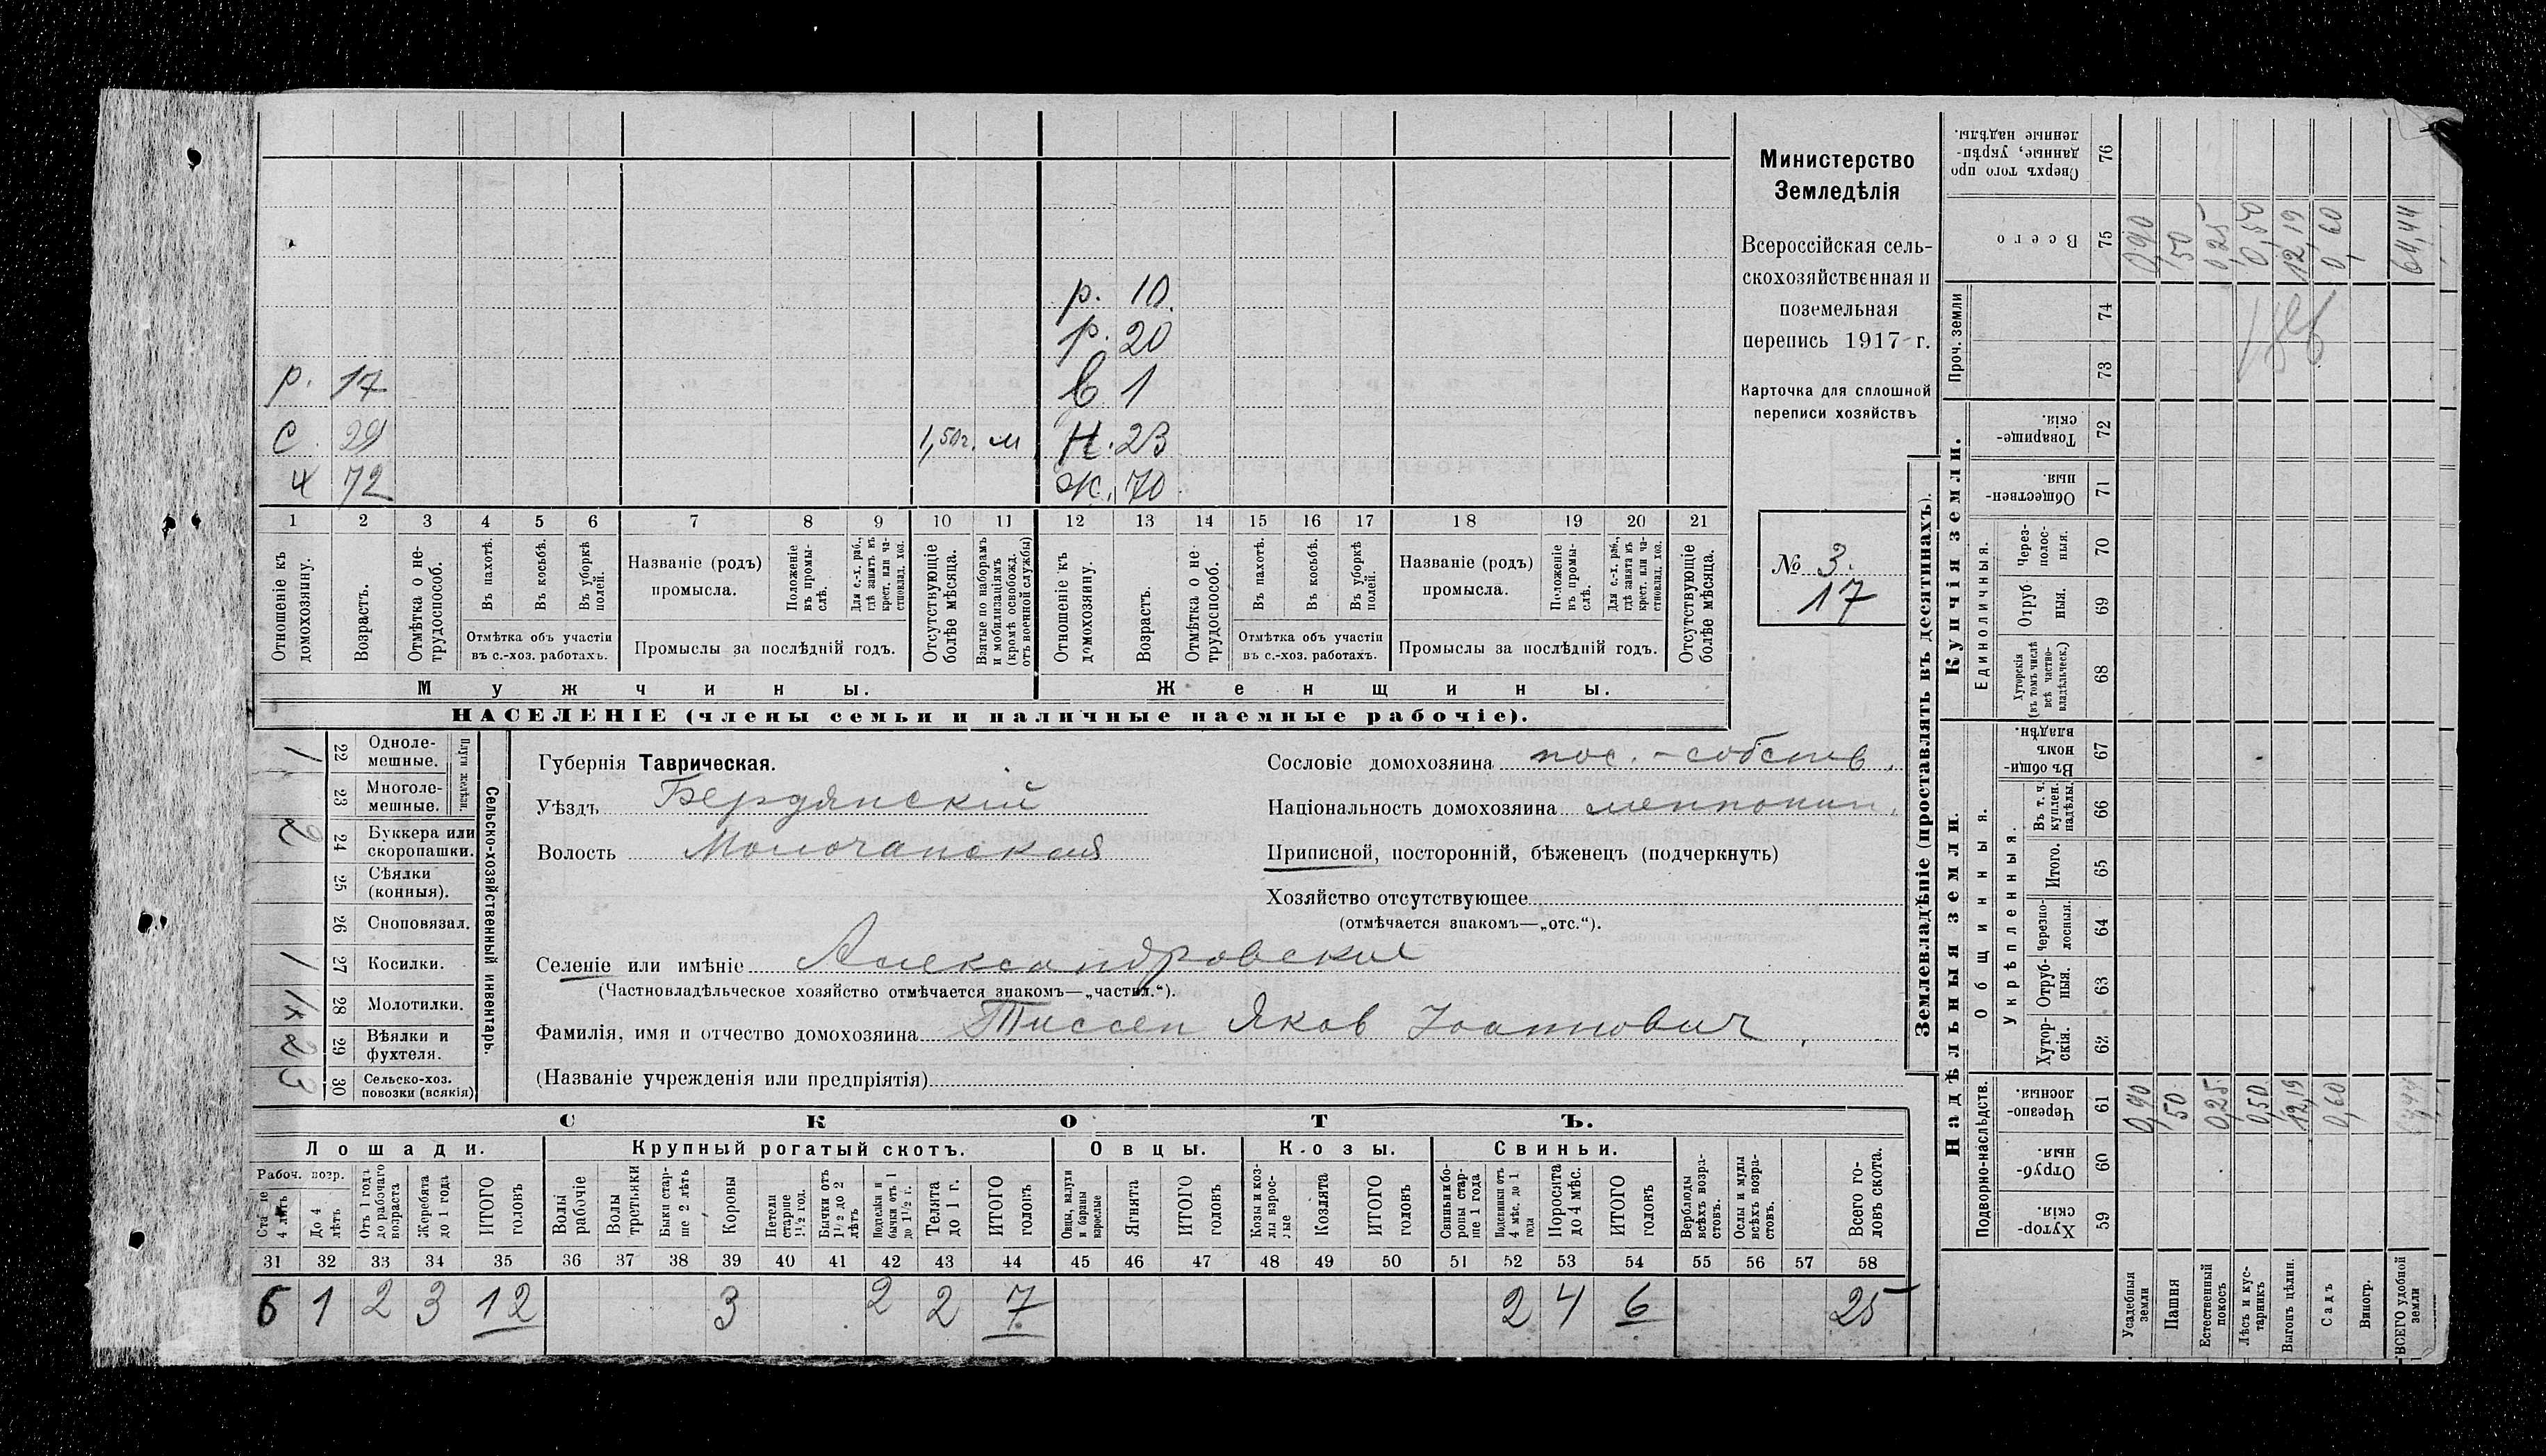 р. 10.
р. 20
р. 17 в 1
с. 29 1,50 г. м Н. 23
х 72 Ж. 70
1 2 3 4 5 6 7 8 9 10 11 12 13 14 15 16 17 18 19 20 21
Отношеніе къ домохозяину.
Возрастъ.
Отмѣтка о не-трудоспособ.
Въ пахотѣ.
Въ косьбѣ.
Въ уборкѣ полей.
Отмѣтка объ участіи въ с.-хоз. работахъ.
Названіе (родъ) промысла.
Положеніе въ промы-слѣ.
Для с.-х. раб., гдѣ занятъ въ крест. или ча-стновлад. хоз.
Промыслы за послѣдній годъ.
Отсутствующіе болѣе мѣсяца.
Взятые по наборамъ и мобилизаціямъ (кромѣ освобожд. отъ военной службы)
Отношеніе къ домохозяину.
Возрастъ.
Отмѣтка о не-трудоспособ.
Въ пахотѣ.
Въ косьбѣ.
Въ уборкѣ полей.
Отмѣтка объ участіи въ с.-хоз. работахъ.
Названіе (родъ) промысла.
Положеніе въ промы-слѣ.
Для с.-х. раб., гдѣ занята въ крест. или ча-стновлад. хоз.
Промыслы за послѣдній годъ.
Отсутствующіе болѣе мѣсяца.
Мужчины. Женщины.
НАСЕЛЕНІЕ (члены семьи и наличные наемные рабочіе).
Министерство
Земледѣлія
Всероссійская сель-
скохозяйственная и
поземельная
перепись 1917 г.
Карточка для сплошной
переписи хозяйствъ
№ 3.
17
Сельско-хозяйственный инвентарь.
Плуги желѣзн.
22 Одноле-мешные. 1
23 Многоле-мешные.
24 Буккера или скоропашки. 2
25 Сѣялки (конныя).
26 Сноповязал.
27 Косилки. 1
28 Молотилки. 1к
29 Вѣялки и фухтеля. 2
30 Сельско-хоз. повозки (всякія) 3
Губернія Таврическая.
Уѣздъ Бердянскій
Волость Молочанская
Сословіе домохозяина пос.-собств.
Національность домохозяина меннонит.
Приписной, посторонній, бѣженецъ (подчеркнуть)
Хозяйство отсутствующее
(отмѣчается знакомъ—„отс.“).
Селеніе или имѣніе Александровское
(Частновладѣльческое хозяйство отмѣчается знакомъ—„частвл.“).
Фамилія, имя и отчество домохозяина Тиссен Яков Іоаннович
(Названіе учрежденія или предпріятія)
СКОТЪ.
Лошади. Крупный рогатый скотъ. Овцы. Козы. Свиньи.
Рабоч. возр.
4 лѣтъ
До 4 лѣтъ
Отъ 1 года до рабочаго возраста
Жеребята до 1 года
ИТОГО головъ
Волы рабочіе
Волы третьяки
Быки стар-ше 2 лѣтъ
Коровы
Нетели старше 1½ год.
Бычки отъ 1½ до 2 лѣтъ
Подтелки и бычки отъ 1 до 1½ г.
Телята до 1 г.
ИТОГО головъ
Овцы, валухи и бараны взрослые
Ягнята
ИТОГО головъ
Козы и коз-лы взрос-лые
Козлята
ИТОГО головъ
Свиньи и бо-ровы стар-ше 1 года
Подсвинки отъ 4 мѣс. до 1 года
Поросята до 4 мѣс.
ИТОГО головъ
Верблюды всѣхъ возра-стовъ.
Ослы и мулы всѣхъ возра-стовъ.
Всего го-ловъ скота.
31 32 33 34 35 36 37 38 39 40 41 42 43 44 45 46 47 48 49 50 51 52 53 54 55 56 57 58
6 1 2 3 12 3 2 2 7 2 4 6 25
Землевладѣніе (проставлять въ десятинахъ).
Надѣльныя земли. Купчія земли. Проч. земли
Подворно-наслѣдств.
Общинныя.
Укрѣпленныя.
Единоличныя.
Хутор-скія. 59
Отруб-ныя. 60
Черезпо-лосныя. 61
Хутор-скія. 62
Отруб-ныя. 63
Черезпо-лосныя. 64
Итого. 65
Въ т. ч. куплен. надѣлы. 66
Въ общи-номъ владѣн. 67
Хуторскія (въ томъ числѣ всѣ частно-владѣльческ.) 68
Отруб ныя. 69
Через-полос-ныя. 70
Обществен-ныя. 71
Товарище-скія. 72
73
74
Всего 75
Сверхъ того про данные, укрѣп-ленные надѣлы. 76
Усадебныя земли 0,90 0,90
Пашня 50 50
Естественный покосъ 0,25 0,25
Лѣсъ и кус-тарникъ 0,50 0,50
Выгонъ цѣлин. 12,19 12,19
Садъ 0,60 0,60
Виногр.
ВСЕГО удобной земли 64,44 64,44